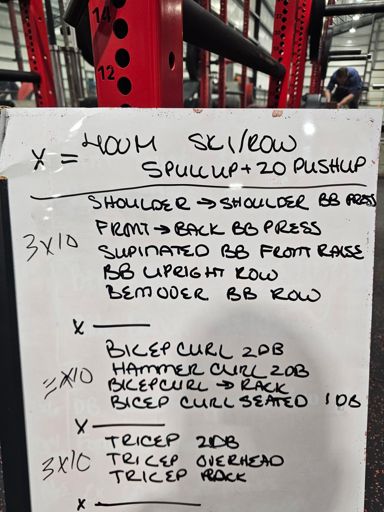 14
12
X = 400M SKI/ROW
5PULLUP + 20 PUSHUP
SHOULDER → SHOULDER BB PRESS
3X10 FRONT → BACK BB PRESS
SUPINATED BB FRONT RAISE
BB UPRIGHT ROW
BENTOVER BB ROW
X
BICEP CURL 2DB
HAMMER CURL 2DB
3X10 BICEP CURL → RACK
BICEP CURL SEATED 1DB
X
TRICEP 2DB
3X10 TRICEP OVERHEAD
TRICEP RACK
X